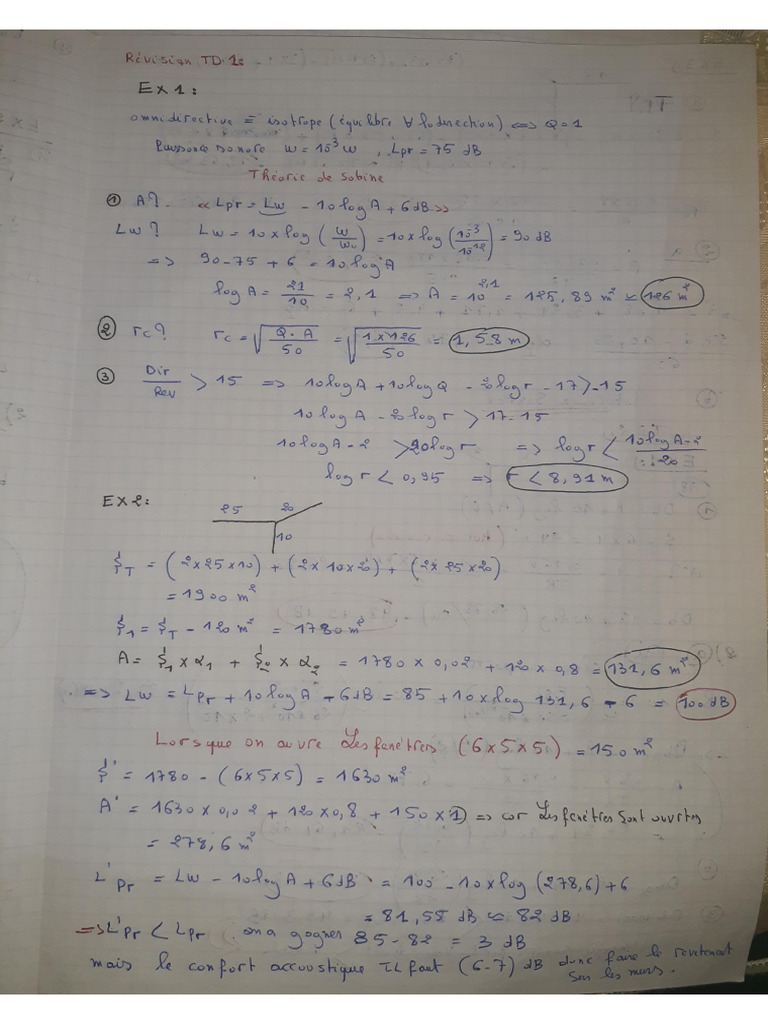 Révision TD 1:
EX1:
omnidirective = isotrope (équilibre ∀ la direction) <=> Q = 1
Puissance sonore W = 10^-3 W , Lpr = 75 dB
Théorie de Sabine
① A? « Lpr = Lw - 10 log A + 6 dB »
Lw? Lw = 10 x log (W/W0) = 10 x log (10^-3/10^-12) = 90 dB
=> 90 - 75 + 6 = 10 log A
log A = 21/10 = 2,1 => A = 10^2,1 = 125,89 m² ≃ 126 m²
② rc? rc = √(Q.A/50) = √(1 x 126/50) = 1,58 m
③ Dir/Rev > 15 => 10 log A + 10 log Q - 20 log r - 17 > -15
10 log A - 20 log r > 17 - 15
10 log A - 2 > 20 log r => log r < (10 log A - 2)/20
log r < 0,95 => r < 8,91 m
EX2:
25 20
10
$T = (2x25x10) + (2x10x20) + (2x25x20)
= 1900 m²
$1 = $T - 120 m² = 1780 m²
A = $1 x α1 + $2 x α2 = 1780 x 0,02 + 120 x 0,8 = 131,6 m²
=> Lw = LPr + 10 log A - 6 dB = 85 + 10 x log 131,6 - 6 = 100 dB
Lorsque on ouvre Les fenêtres (6x5x5) = 150 m²
$' = 1780 - (6x5x5) = 1630 m²
A' = 1630 x 0,02 + 120 x 0,8 + 150 x 1 => car Les fenêtres sont ouvrtes
= 278,6 m²
L'Pr = Lw - 10 log A + 6 dB = 100 - 10 x log (278,6) + 6
= 81,55 dB ≃ 82 dB
=> L'Pr < LPr on a gagner 85 - 82 = 3 dB
mais le confort accoustique IL faut (6-7) dB donc faire le revetemat
sur les murs.